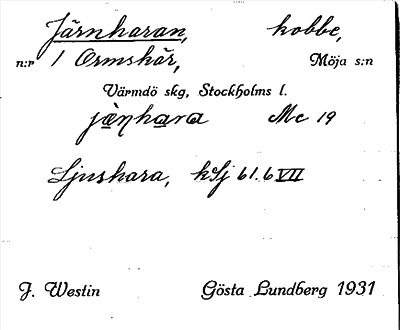 Järnharan, kobbe,
n:r 1 Ormskär, Möja s:n
Värmdö skg, Stockholms l.
jä̀ṇhara Mc 19
Ljushara, kSj 61.6 VII
J. Westin Gösta Lundberg 1931